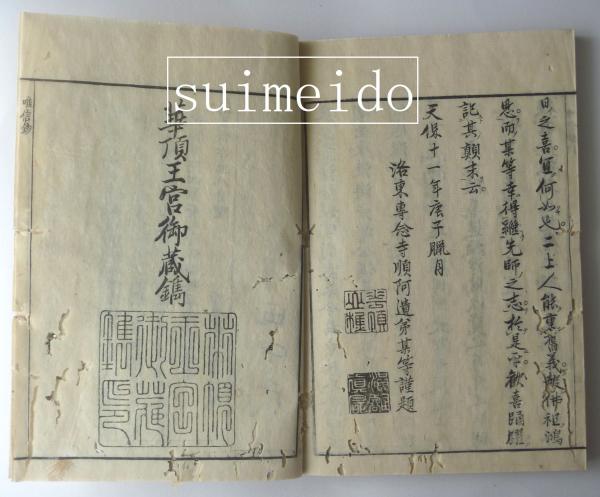 suimeido
日之喜冝何如也二上人能熏舊義報佛祖鴻
恩而某等幸得繼先師之志於是乎歡喜踊躍
記其顛末云
天保十一年庚子臘月
洛東專念寺順阿遺弟某等謹題
頂王宮御藏鐫
唯信鈔